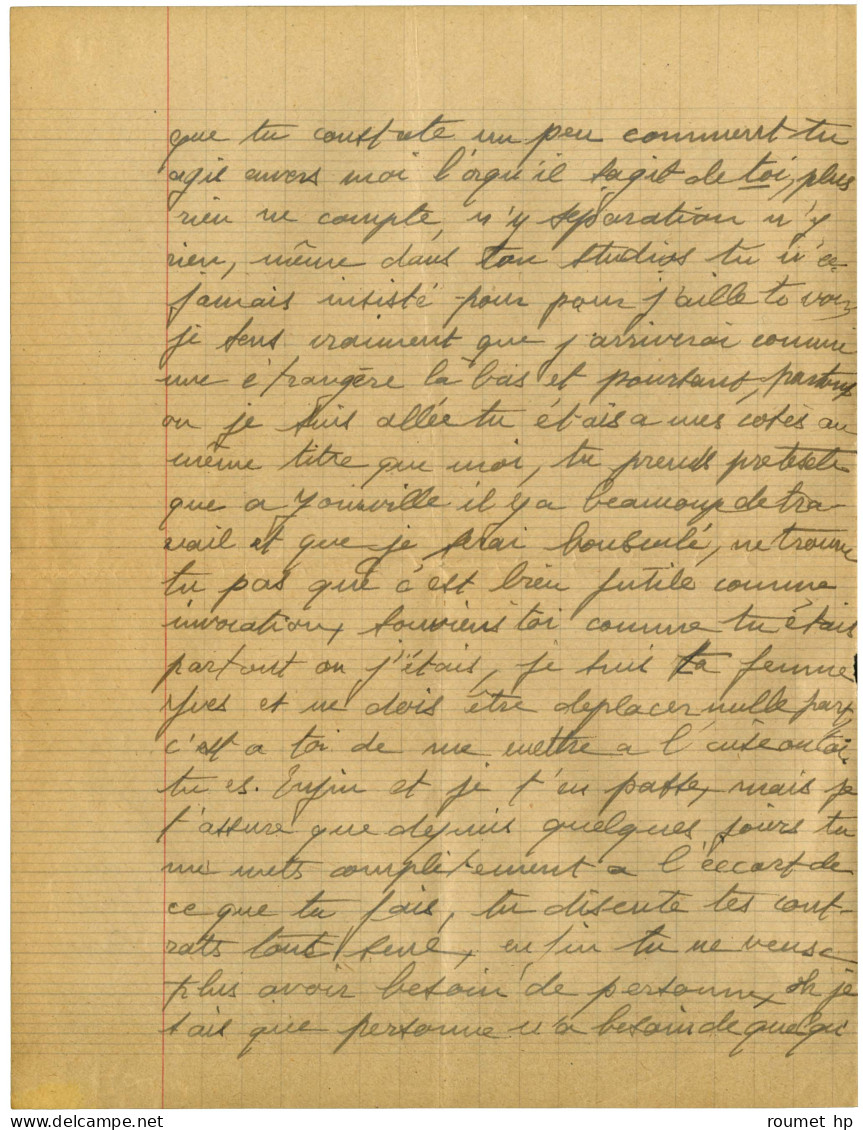 que tu constate un peu comment tu
agis envers moi l'orqu'il sagit de toi, plus
rien ne compte, n'y séparation n'y
rien, même dans ton studios tu n'a
jamais insisté pour pour j'aille te voir,
je sens vraiment que j'arriverai comme
une étrangère là bas et pourtant, partout
ou je suis allée tu étais a mes cotés au
même titre que moi, tu prends pretexte
que a Joinville il y a beaucoup de tra-
vail et que je serai bousculé, ne trouve
tu pas que c'est bien futile comme
invocation, souviens toi comme tu étais
partout ou j'étais, je suis ta femme
Yves et ne dois être deplacer nulle part,
c'est a toi de me mettre a l'aise ou toi
tu es. Enfin et je t'en passe, mais je
t'assure que depuis quelques jours tu
me mets complètement a l'éccart de
ce que tu fais, tu discute tes cont-
rats tout seul, enfin tu ne veus
plus avoir besoin de personne, oh je
sais que personne n'a besoin de quelqu'
roumet hp